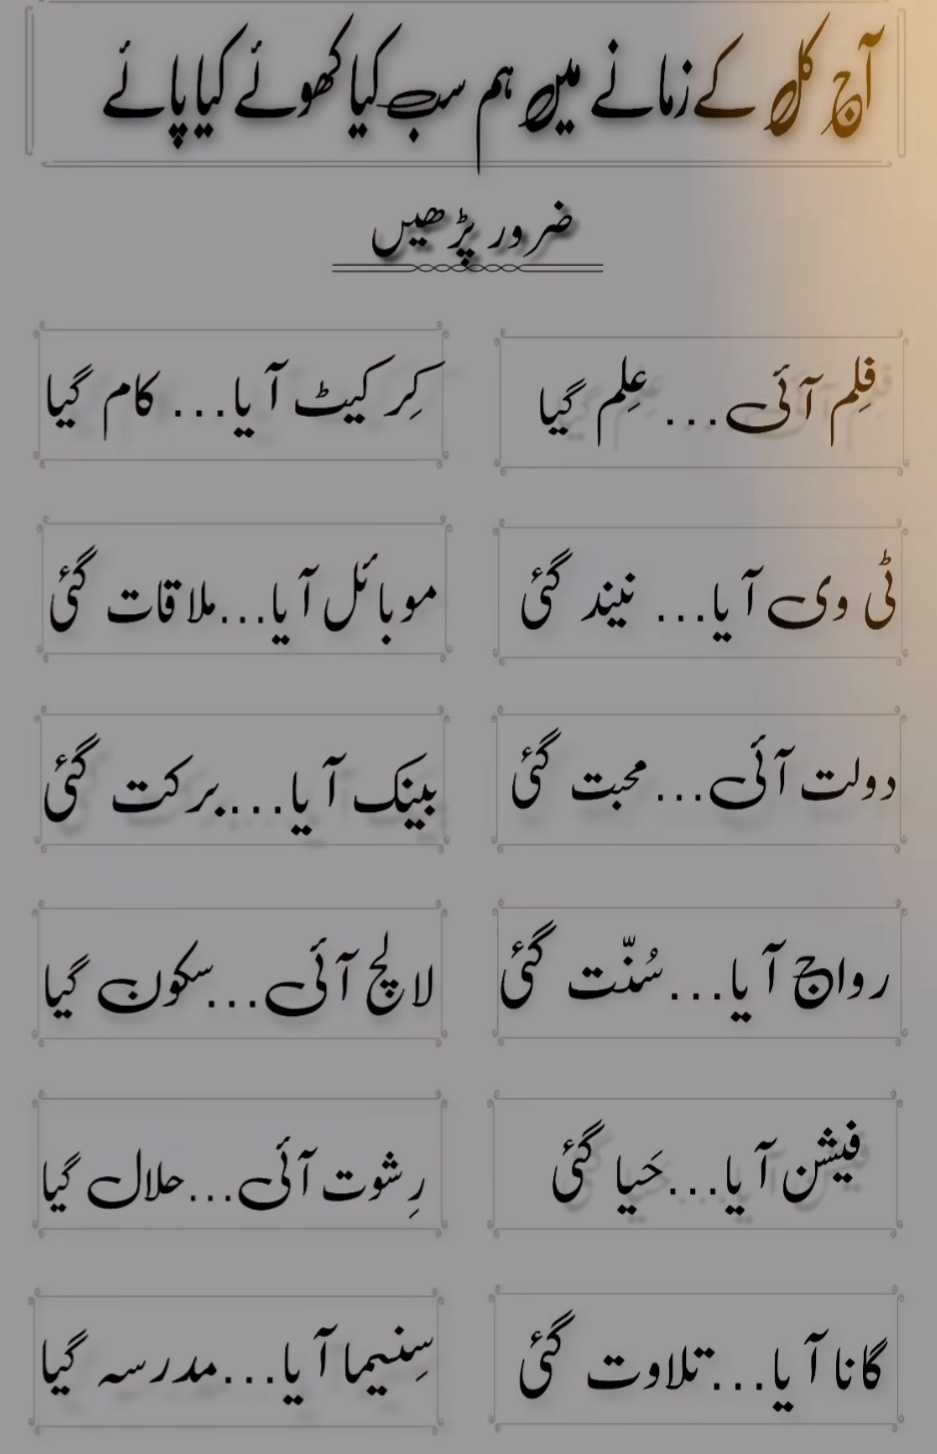 آج کل کے زمانے میں ہم سب کیا کھوئے کیا پائے
ضرور پڑھیں
فِلِم آئی... عِلِم گیا
کِرکیٹ آیا... کام گیا
ٹی وی آیا... نیند گئی
موبائل آیا...ملاقات گئی
دولت آئی... محبت گئی
بینک آیا...برکت گئی
رواج آیا...سُنّت گئی
لالچ آئی...سکون گیا
فیشن آیا...حَیا گئی
رِشوت آئی...حلال گیا
گانا آیا...تلاوت گئی
سِنیما آیا...مدرسہ گیا